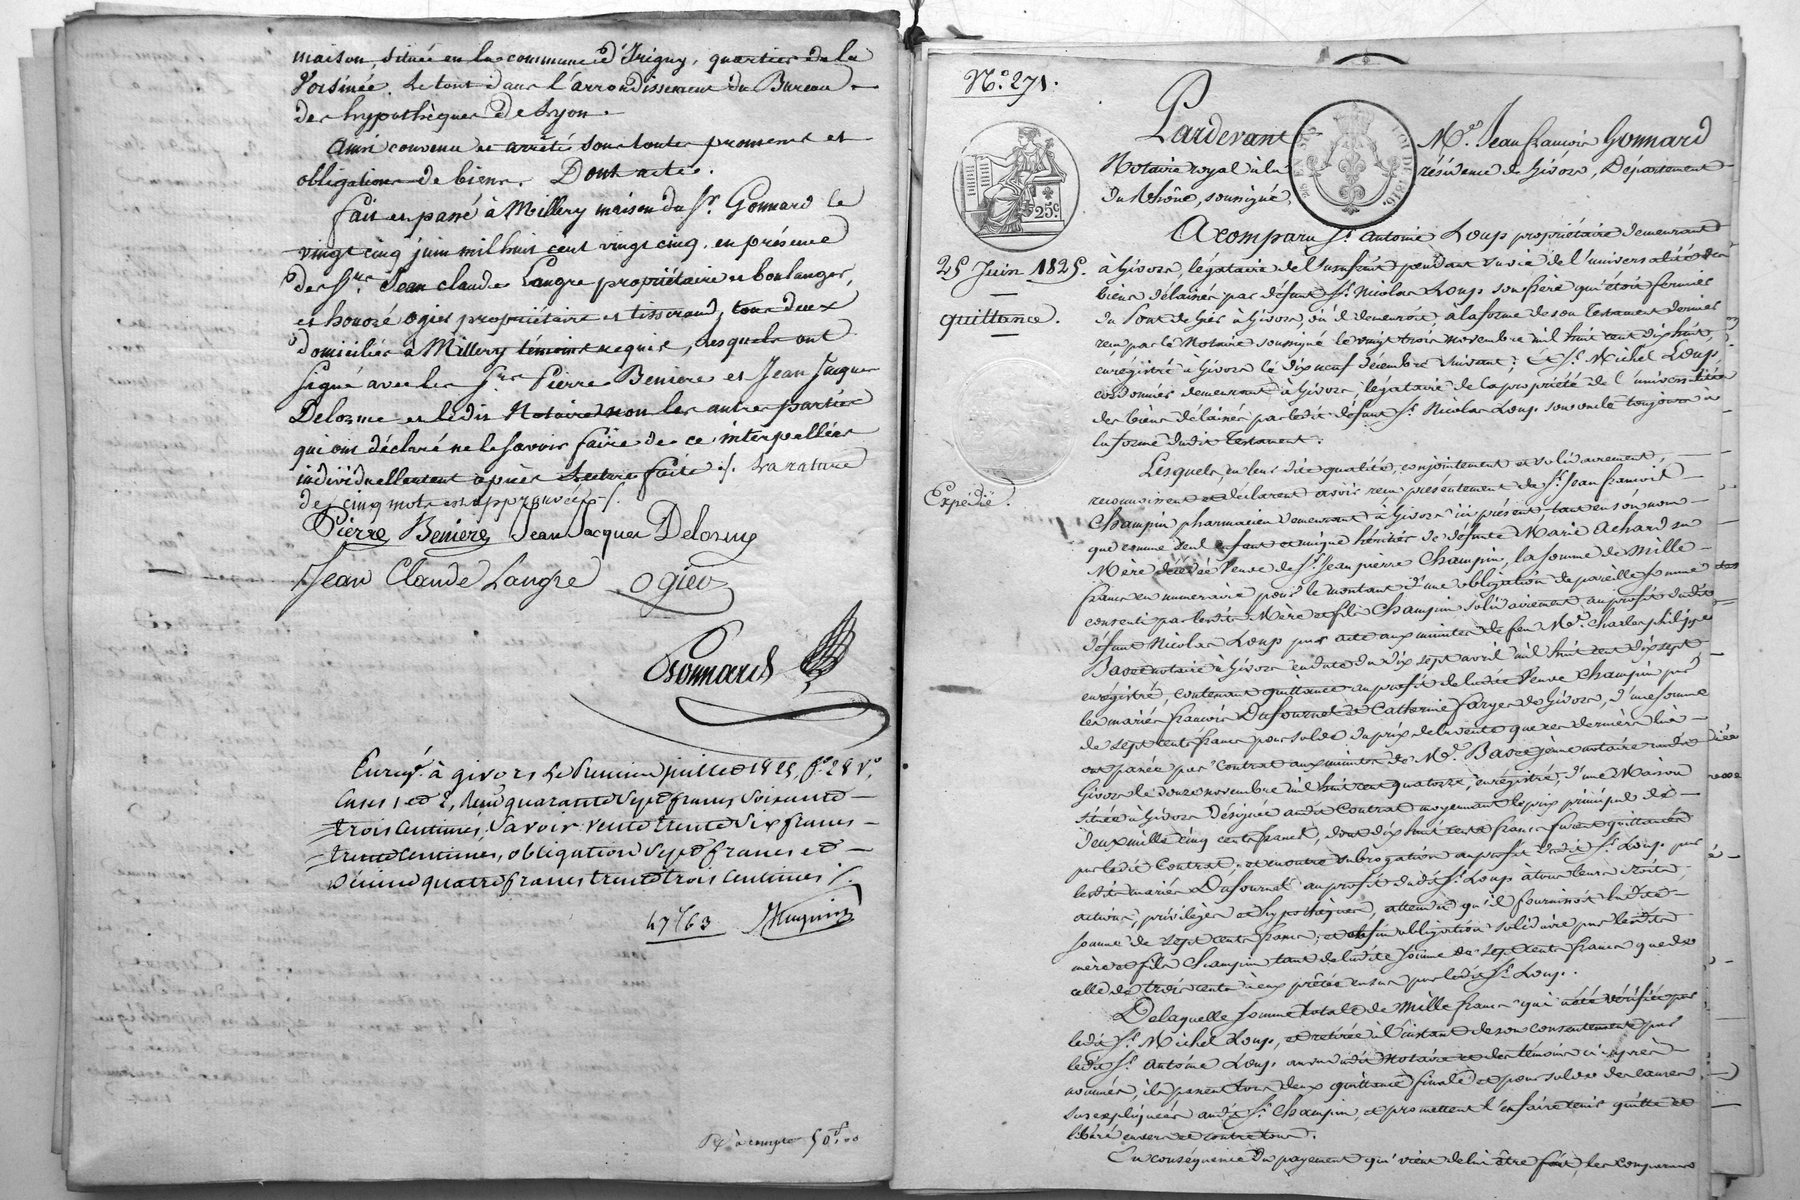 maison, située en la commune d'Irigny, quartier de la
Voisinée. Le tout dans l'arrondissement du Bureau
des hypothèques de Lyon.
Ainsi convenu et arrêté sous toutes promesses et
obligations de biens. Dont acte.
fait et passé à Millery maison du Sr. Gonnard le
vingt cinq juin mil huit cent vingt cinq, en présence
de Srs. Jean Claude Langre propriétaire et boulanger,
et honoré Ogier propriétaire et tisserand, tous deux
domiciliés à Millery témoins requis, lesquels ont
signé avec les Srs. Pierre Beniere et Jean Jacques
Delorme et ledit Notaire non les autres parties
qui ont déclaré ne le savoir faire de ce interpellées
individuellement après lecture faite ./. La rature
de cinq mots est approuvée ./.
Pierre Beniere Jean Jacques Delorme
Jean Claude Langre Ogier
Gonnard
Enregé. à givors le Premier juillet 1825, fo. 28 vo.
Cases 1 et 2, Reçu quarante sept francs soixante
trois centimes. Savoir vente trente six francs
trente centimes, obligation sept francs et
Décime quatre francs trente trois centimes ./.
47f 63
à compte 50f.00
No. 271.
25c
25 Juin 1825.
quittance.
Expédié.
Pardevant Me. Jean françois Gonnard
Notaire royal à la résidence de Givors, Département
du Rhône, soussigné,
A comparu Sr. Antoine Loup propriétaire demeurant
à Givors, légataire de l'usufruit pendant sa vie de l'universalité des
biens délaissés par défunt Sr. Nicolas Loup son frère qui étoit fermier
du Pont de Giers à Givors, où il demeuroit à la forme de son testament dernier
reçu par le Notaire soussigné le vingt trois novembre mil huit cent dix huit,
enregistré à Givors le dix neuf décembre suivant; Et Sr. Michel Loup,
cordonnier demeurant à Givors légataire de la propriété de l'universalité
des biens délaissés par ledit défunt Sr. Nicolas Loup son oncle toujours à
la forme dudit Testament.
Lesquels, en leur dite qualité, conjointement et solidairement,
reconnoissent et déclarent avoir reçu présentement de Sr. Jean françois
Champin pharmacien demeurant à Givors ici présent, tant en son nom
que comme seul enfant et unique héritier de défunte Marie Achard sa
Mère décédée Veuve de Sr. Jean pierre Champin, la somme de mille
francs en numéraire pour le montant d'une obligation de pareille somme
consentie par lesdits Mère et fils Champin solidairement au profit dudit
défunt Nicolas Loup par acte aux minutes de feu Me. Charles philippe
Basse notaire à Givors en date du dix sept avril mil huit cent dix sept
enregistré, contenant quittance au profit de ladite Veuve Champin par
les mariés françois Dufournel et Catherine farges de Givors, d'une somme
de sept cents francs pour solde du prix de la vente que ces derniers lui
ont passée par contrat aux minutes de Me. Basse jeune notaire audit
Givors le douze novembre mil huit cent quatorze, enregistré, d'une Maison
située à Givors désignée audit Contrat moyennant le prix principal de
deux mille cinq cents francs, dont dix huit cents francs furent quittancés
par ledit Contrat, et en outre subrogation au profit dudit Sr. Loup par
lesdits mariés Dufournel au profit dudit Sr. Loup à tous leurs droits,
actions, privilèges et hypothèques attendu qu'il fournissoit ladite
somme de sept cents francs, et enfin obligation solidaire par lesdits
mère et fils Champin tant de ladite somme de sept cents francs que de
celle de trois cents à eux prêtée en sus par ledit Sr. Loup.
De laquelle somme totale de mille francs qui a été vérifiée par
ledit Sr. Michel Loup, et retirée à l'instant de son consentement par
ledit Sr. Antoine Loup au vu dudit Notaire et des témoins ci-après
nommés, ils passent tous deux quittance finale et pour solde des causes
susexpliquées audit Sr. Champin, et promettent l'en faire tenir quitte et
libéré envers et contre tous.
En conséquence du payement qui vient de lui être fait, les comparans